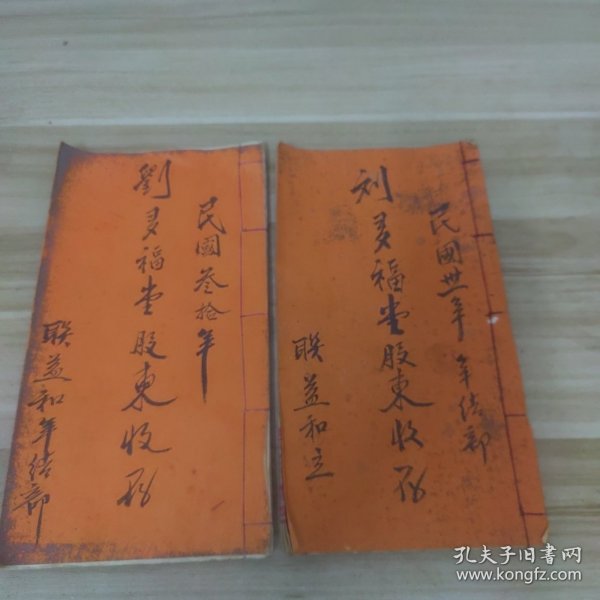 民國叁拾年
劉多福堂股東收存
聯益和年結部
民國卅年 年結部
刘多福堂股東收存
聯益和立
孔夫子旧書网
www.kongfz.com